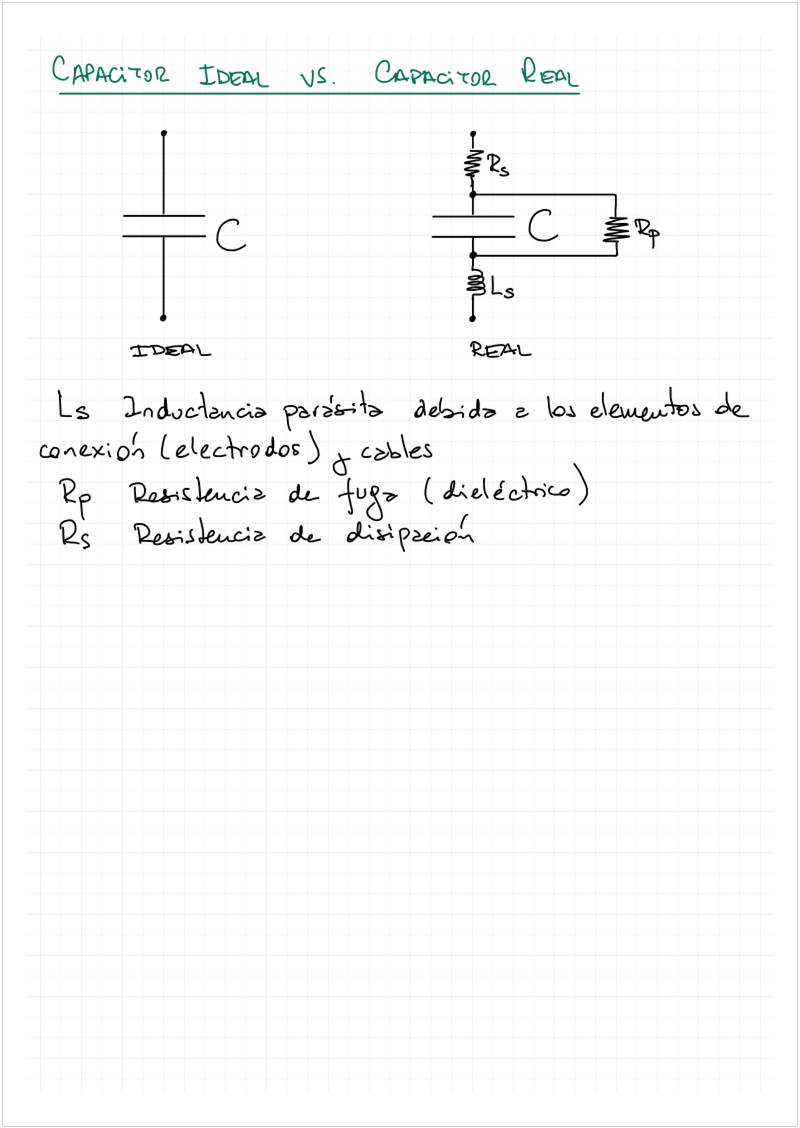 CAPACITOR IDEAL VS. CAPACITOR REAL
Rs
C
C
Rp
Ls
IDEAL
REAL
Ls Inductancia parásita debida a los elementos de
conexión (electrodos) y cables
Rp Resistencia de fuga (dieléctrico)
Rs Resistencia de disipación